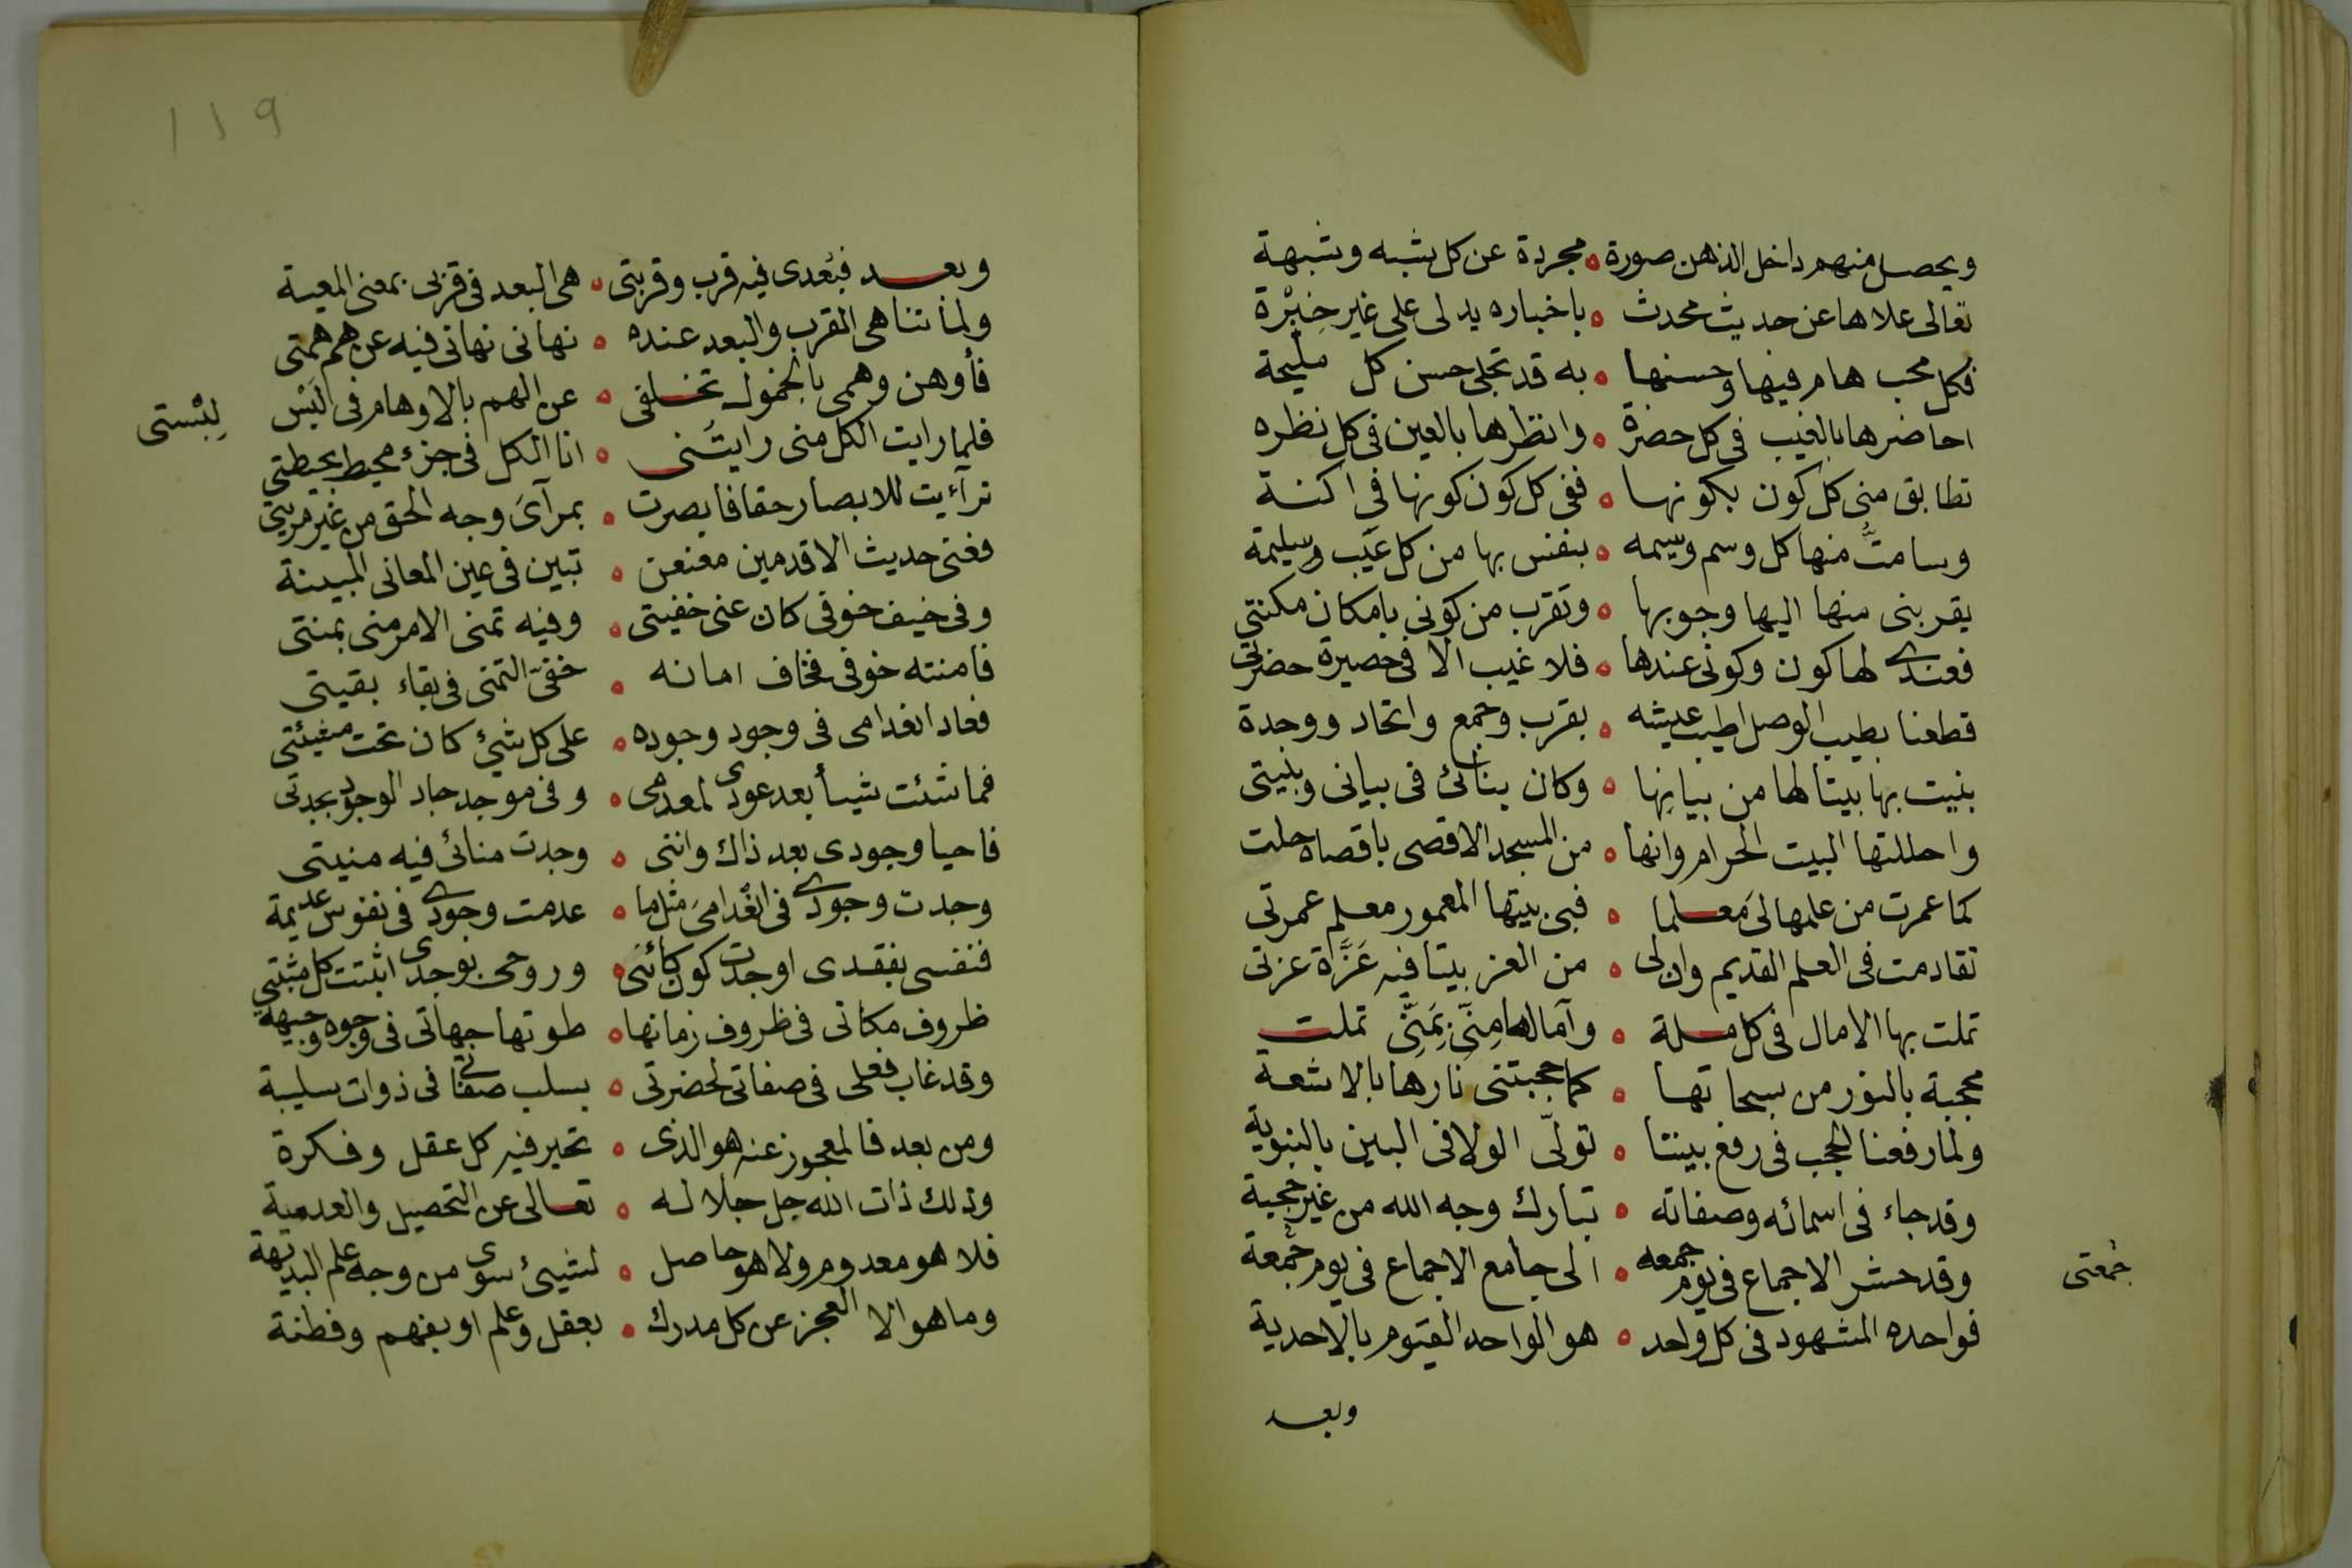 ويحصل منهم داخل الذهن صورة ۰ مجردة عن كل شبه وشبهة
تعالى علاها عن حديث محدث ۰ باخباره يدلى على غير خِبْرة
فكل محب هام فيها وحسنها ۰ به قد تجلى حسن كل مليحة
احاضرها بالغيب فى كل حضرة ۰ وانظرها بالعين فى كل نظره
تطابق منى كل كون بكونها ۰ ففى كل كون كونها فى اكنة
وسامتُّ منها كل وسم وسيمه ۰ بنفس بها من كل عيب وسليمة
يقربنى منها اليها وجوبها ۰ وتقرب من كونى بامكان مكنتى
فعندى لها كون وكونى عندها ۰ فلا غيب الا فى حصيرة حضرتى
قطعنا بطيب الوصل اطيب عيشه ۰ بقرب وجمع واتحاد ووحدة
بنيت بها بيتا لها من بيانها ۰ وكان بنائى فى بيانى وبنيتى
واحللتها البيت الحرام وانها ۰ من المسجد الاقصى باقصاه حلت
كما عمرت من علمها لى مَعلما ۰ فبى بيتها المعمور معلم عمرتى
تقادمت فى العلم القديم وان لى ۰ من العز بيتا فيه عَزَّة عزتى
تملت بها الامال فى كل مسلة ۰ وآمالها مِنّى بِمَنِّى تملت
محجبة بالنور من سبحاتها ۰ كما حجبتنى نارها بالاشعة
ولما رفعنا الحجب فى رفع بيننا ۰ تولّى الولا فى البين بالبنوية
وقد جاء فى اسمائه وصفاته ۰ تبارك وجه الله من غير حجبة
وقد حشر الاجماع فى يوم جمعه ۰ الى جامع الاجماع فى يوم جُمعة
جُمعتى
فواحده المشهود فى كل واحد ۰ هو الواحد القيوم بالاحدية
وبعد
١١٩
وبعد فبُعدى فيه قرب وقربتى ۰ هى البعد فى قربى بمعنى المعية
ولما تناهى القرب والبعد عنده ۰ نهانى نهاتى فيه عن هم همتى
فأوهن وهمى بالخمول تخلفى ۰ عن الهم بالاوهام فى لَبْس
لِبْستى
فلما رايت الكل منى رايتُنى ۰ انا الكل فى جزء محيط بحيطتى
ترآءيت للابصار حقا فابصرت ۰ بمرآىَ وجه الحق من غير مريتى
فعنى حديث الاقدمين معنعن ۰ تبين فى عين المعانى المبينة
وفى خيف خوفى كان عنى خفيتى ۰ وفيه تمنى الامر منى بمنتى
فامنته خوفى فخاف امانه ۰ خفىّ التمنى فى بقاء بقيتى
فعاد انعدامى فى وجود وجوده ۰ على كل شيئ كان تحت مشيئتى
فما شئت شيأ بعد عودى لمعدمى ۰ وفى موجد جاد الوجود بجدتى
فاحيا وجودى بعد ذاك واننى ۰ وجدت منائى فيه منيتى
وجدت وجودى فى انعدامى مثل ما ۰ عدمت وجودى فى نفوس عديمة
فنفسى بفقدى اوجدت كون كائنى ۰ وروحى بوجدى اثبتت كل مثبتى
ظروف مكانى فى ظروف زمانها ۰ طوتها جهاتى فى وجوه وجيهة
وقد غاب فعلى فى صفاتى لحضرتى ۰ بسلب صفاتى فى ذوات سليبة
ومن بعد فالمعجوز عنه هو الذى ۰ تحير فيه كل عقل وفكرة
وذلك ذات الله جل جلاله ۰ تعالى عن التحصيل والعدمية
فلا هو معدوم ولا هو حاصل ۰ لشيئ سوى من وجه علم البديهة
وما هو الا العجز عن كل مدرك ۰ بعقل وعلم او بفهم وفطنة